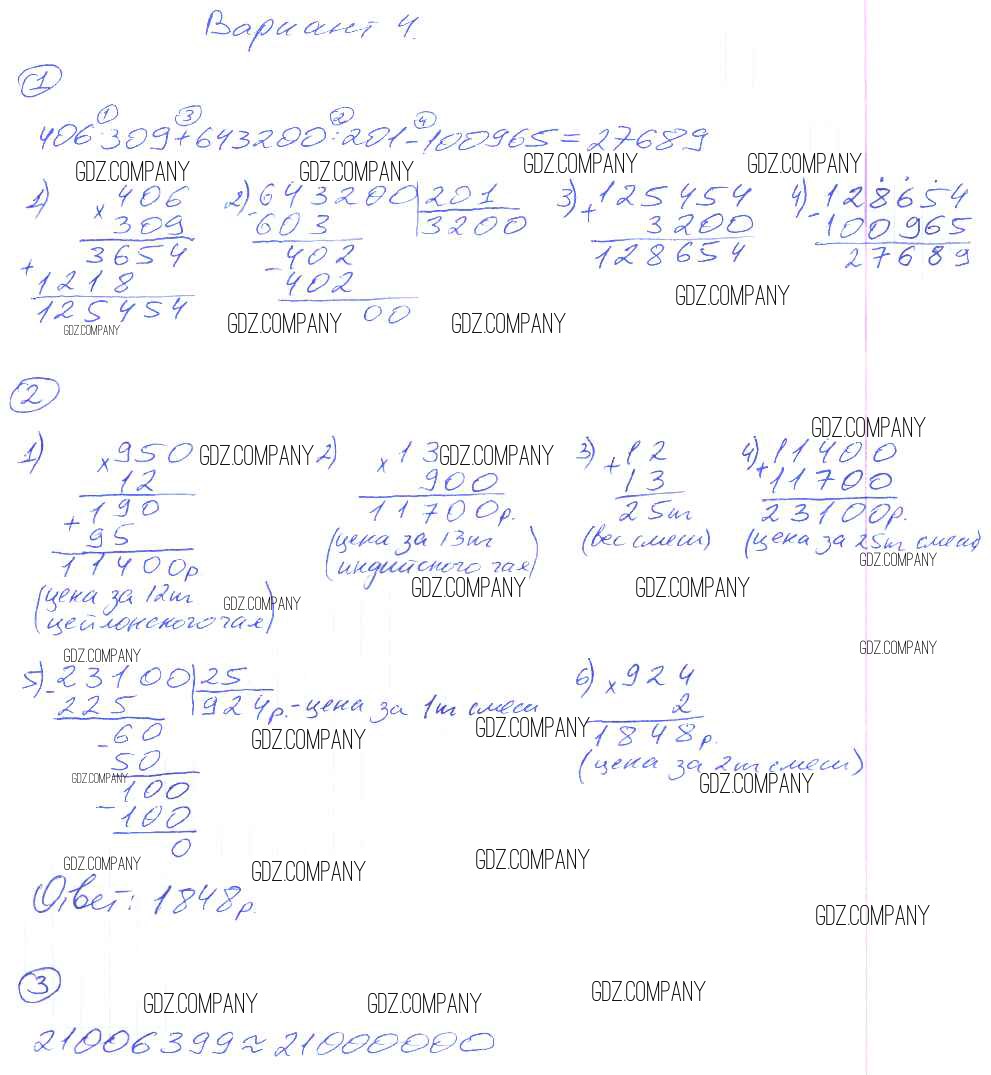 Вариант 4.
1
1 3 2 4
406·309+643200:201-100965=27689
GDZ.COMPANY GDZ.COMPANY GDZ.COMPANY GDZ.COMPANY
1) ×406 2) -643200|201 3) +125454 4) -128654
309 603 3200 3200 100965
3654 402 128654 27689
+1218 -402
125454 00
GDZ.COMPANY GDZ.COMPANY GDZ.COMPANY GDZ.COMPANY
2
GDZ.COMPANY
1) ×950 GDZ.COMPANY 2) ×13 GDZ.COMPANY 3) +12 4) +11400
12 900 13 11700
+190 11700р. 25кг 23100р.
95 (цена за 13кг (вес смеси) (цена за 25кг смеси)
11400р индийского чая) GDZ.COMPANY
(цена за 12кг GDZ.COMPANY GDZ.COMPANY GDZ.COMPANY
цейлонского чая)
GDZ.COMPANY GDZ.COMPANY
5) -23100|25 6) ×924
225 924р.-цена за 1кг смеси 2
-60 GDZ.COMPANY GDZ.COMPANY 1848р.
50 (цена за 2кг смеси)
GDZ.COMPANY 100 GDZ.COMPANY
-100
0
GDZ.COMPANY GDZ.COMPANY GDZ.COMPANY
Ответ: 1848р.
GDZ.COMPANY
3
GDZ.COMPANY GDZ.COMPANY GDZ.COMPANY
21006399≈21000000